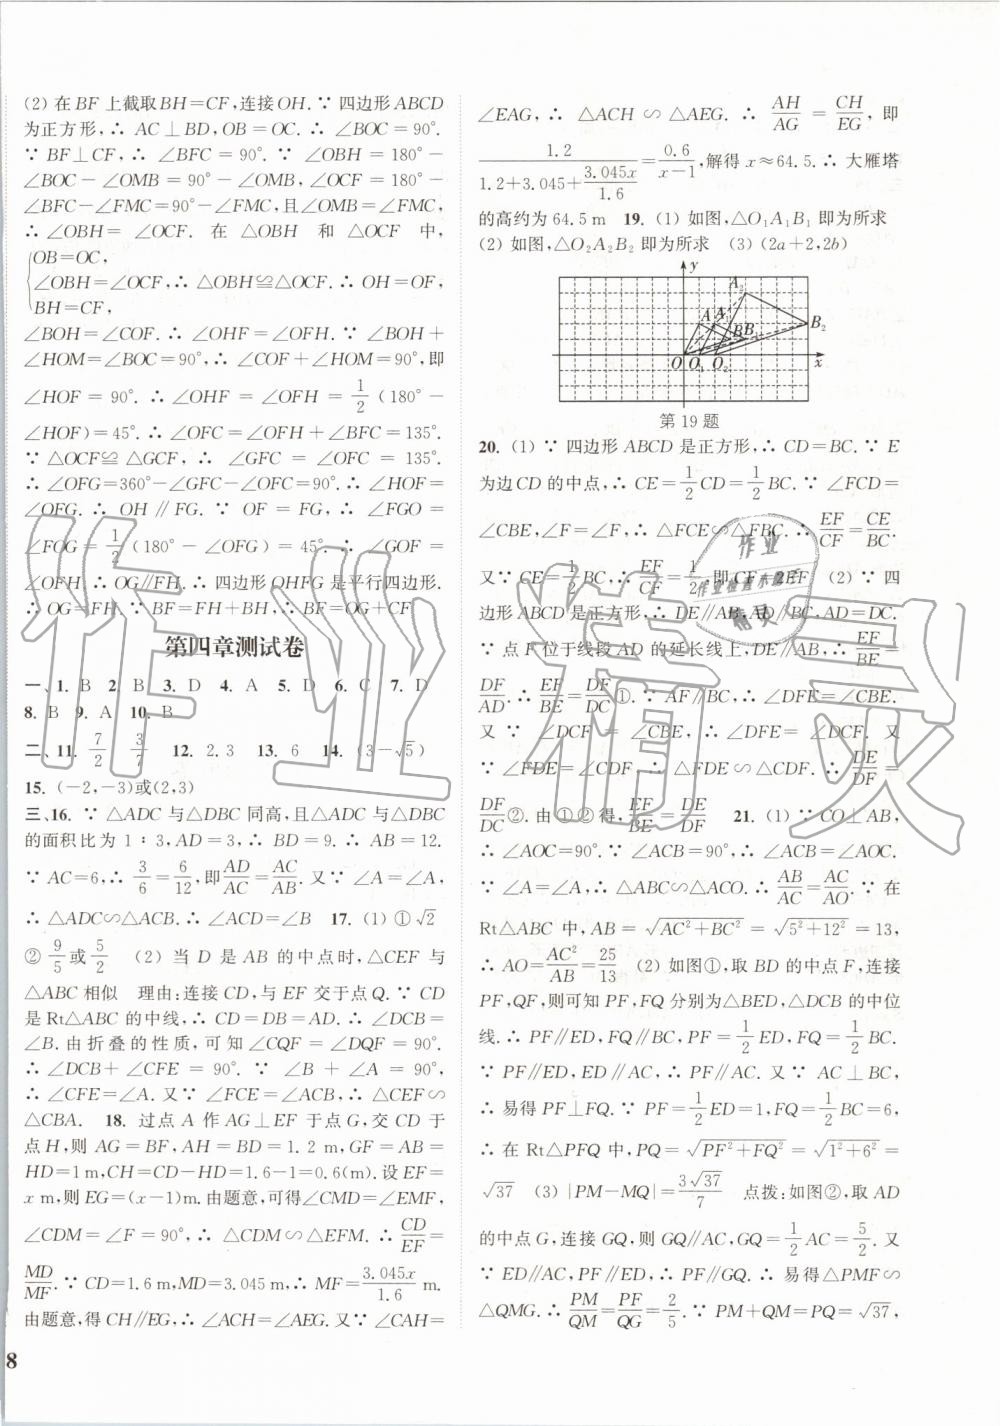 (2) 在 BF 上截取 BH=CF,连接 OH.∵ 四边形 ABCD
为正方形,∴ AC⊥BD,OB=OC.∴ ∠BOC=90°.
∵ BF⊥CF,∴ ∠BFC=90°.∵ ∠OBH=180°-
∠BOC-∠OMB=90°-∠OMB,∠OCF=180°-
∠BFC-∠FMC=90°-∠FMC,且∠OMB=∠FMC,
∴ ∠OBH=∠OCF. 在 △OBH 和 △OCF 中,
{OB=OC,
∠OBH=∠OCF,∴ △OBH≌△OCF.∴ OH=OF,
BH=CF,
∠BOH=∠COF.∴ ∠OHF=∠OFH.∵ ∠BOH+
∠HOM=∠BOC=90°,∴ ∠COF+∠HOM=90°,即
∠HOF=90°.∴ ∠OHF=∠OFH=1/2(180°-
∠HOF)=45°.∴ ∠OFC=∠OFH+∠BFC=135°.
∵ △OCF≌△GCF,∴ ∠GFC=∠OFC=135°.
∴ ∠OFG=360°-∠GFC-∠OFC=90°.∴ ∠HOF=
∠OFG.∴ OH∥FG.∵ OF=FG,∴ ∠FGO=
∠FOG=1/2(180°-∠OFG)=45°.∴ ∠GOF=
∠OFH.∴ OG∥FH.∴ 四边形 OHFG 是平行四边形.
∴ OG=FH.∵ BF=FH+BH,∴ BF=OG+CF
第四章测试卷
一、1. B 2. B 3. D 4. A 5. D 6. C 7. D
8. B 9. A 10. B
二、11. 7/2 3/7 12. 2,3 13. 6 14. (3-√5)
15. (-2,-3)或(2,3)
三、16. ∵ △ADC 与△DBC 同高,且△ADC 与△DBC
的面积比为 1∶3,AD=3,∴ BD=9.∴ AB=12.
∵ AC=6,∴ 3/6=6/12,即AD/AC=AC/AB.又∵ ∠A=∠A,
∴ △ADC∽△ACB.∴ ∠ACD=∠B 17. (1) ①√2
②9/5或5/2 (2) 当 D 是 AB 的中点时,△CEF 与
△ABC 相似 理由:连接 CD,与 EF 交于点 Q.∵ CD
是 Rt△ABC 的中线,∴ CD=DB=AD.∴ ∠DCB=
∠B.由折叠的性质,可知∠CQF=∠DQF=90°.
∴ ∠DCB+∠CFE=90°.∵ ∠B+∠A=90°,
∴ ∠CFE=∠A.又∵ ∠FCE=∠ACB,∴ △CEF∽
△CBA. 18. 过点 A 作 AG⊥EF 于点 G,交 CD 于
点 H,则 AG=BF,AH=BD=1.2 m,GF=AB=
HD=1 m,CH=CD-HD=1.6-1=0.6(m).设 EF=
x m,则 EG=(x-1)m.由题意,可得∠CMD=∠EMF,
∠CDM=∠F=90°,∴ △CDM∽△EFM.∴ CD/EF=
MD/MF.∵ CD=1.6 m,MD=3.045 m,∴ MF=3.045x/1.6 m.
由题意,得 CH∥EG,∴ ∠ACH=∠AEG.又∵ ∠CAH=
8
∠EAG,∴ △ACH∽△AEG.∴ AH/AG=CH/EG,即
1.2/(1.2+3.045+3.045x/1.6)=0.6/(x-1),解得 x≈64.5.∴ 大雁塔
的高约为 64.5 m 19. (1) 如图,△O₁A₁B₁ 即为所求
(2) 如图,△O₂A₂B₂ 即为所求 (3) (2a+2,2b)
y
A₂
A A₁
B B₁ B₂
O O₁ O₂ x
第 19 题
20. (1) ∵ 四边形 ABCD 是正方形,∴ CD=BC.∵ E
为边 CD 的中点,∴ CE=1/2CD=1/2BC.∵ ∠FCD=
∠CBE,∠F=∠F,∴ △FCE∽△FBC.∴ EF/CF=CE/BC.
又∵ CE=1/2BC,∴ EF/CF=1/2,即 CF=2EF (2) ∵ 四
边形 ABCD 是正方形,∴ DE∥AB,AD∥BC,AD=DC.
∵ 点 F 位于线段 AD 的延长线上,DE∥AB,∴ EF/BE=
DF/AD.∴ EF/BE=DF/DC①.∵ AF∥BC,∴ ∠DFE=∠CBE.
又∵ ∠DCF=∠CBE,∴ ∠DFE=∠DCF.又
∵ ∠FDE=∠CDF,∴ △FDE∽△CDF.∴ DE/DF=
DF/DC②.由①②得,EF/BE=DE/DF 21. (1) ∵ CO⊥AB,
∴ ∠AOC=90°.∵ ∠ACB=90°,∴ ∠ACB=∠AOC.
∵ ∠A=∠A,∴ △ABC∽△ACO.∴ AB/AC=AC/AO.∵ 在
Rt△ABC 中,AB=√(AC²+BC²)=√(5²+12²)=13,
∴ AO=AC²/AB=25/13 (2) 如图①,取 BD 的中点 F,连接
PF,QF,则可知 PF,FQ 分别为△BED,△DCB 的中位
线.∴ PF∥ED,FQ∥BC,PF=1/2ED,FQ=1/2BC.
∵ PF∥ED,ED∥AC,∴ PF∥AC.∵ AC⊥BC,
∴ 易得 PF⊥FQ.∵ PF=1/2ED=1,FQ=1/2BC=6,
∴ 在 Rt△PFQ 中,PQ=√(PF²+FQ²)=√(1²+6²)=
√37 (3) |PM-MQ|=3√37/7 点拨:如图②,取 AD
的中点 G,连接 GQ,则 GQ∥AC,GQ=1/2AC=5/2.又
∵ ED∥AC,PF∥ED,∴ PF∥GQ.∴ 易得△PMF∽
△QMG.∴ PM/QM=PF/QG=2/5.∵ PM+QM=PQ=√37,
作业精灵